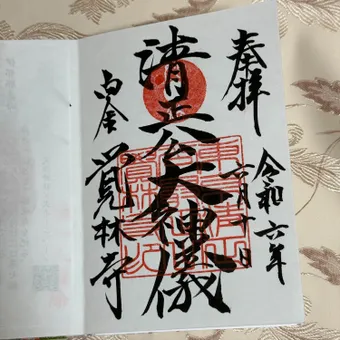 奉拝
令和六年
十一月十一日
清正公大神儀
白金
覚林寺